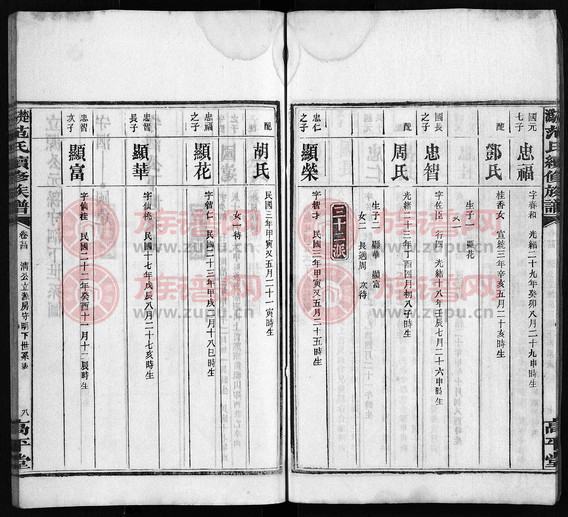 范氏續修族譜
高平堂
國元
七子
忠福
字春和 光緒二十九年癸卯八月二十九申時生
配
鄧氏
桂香女 宣統三年辛亥五月二十亥時生
生子一 顯花
女一
國長
之子
忠智
字佐臣 行四 光緒十八年壬辰七月二十六申時生
配
周氏
光緒二十三年丁酉四月初八子時生
生子二 顯華 顯富
女二 長適周 次待
三十三派
忠仁
之子
顯榮
字哲才 民國三年甲寅五月二十五時生
配
胡氏
民國三年甲寅又五月二十一寅時生
女一 待
忠福
之子
顯花
字哲仁 民國二十三年甲戌二月十八巳時生
忠智
長子
顯華
字偵桃 民國十七年戊辰八月二十七亥時生
忠智
次子
顯富
字偵桂 民國二十二年癸酉十一月十一辰時生
范氏續修族譜
卷
八
高平堂
族譜网
www.zupu.cn